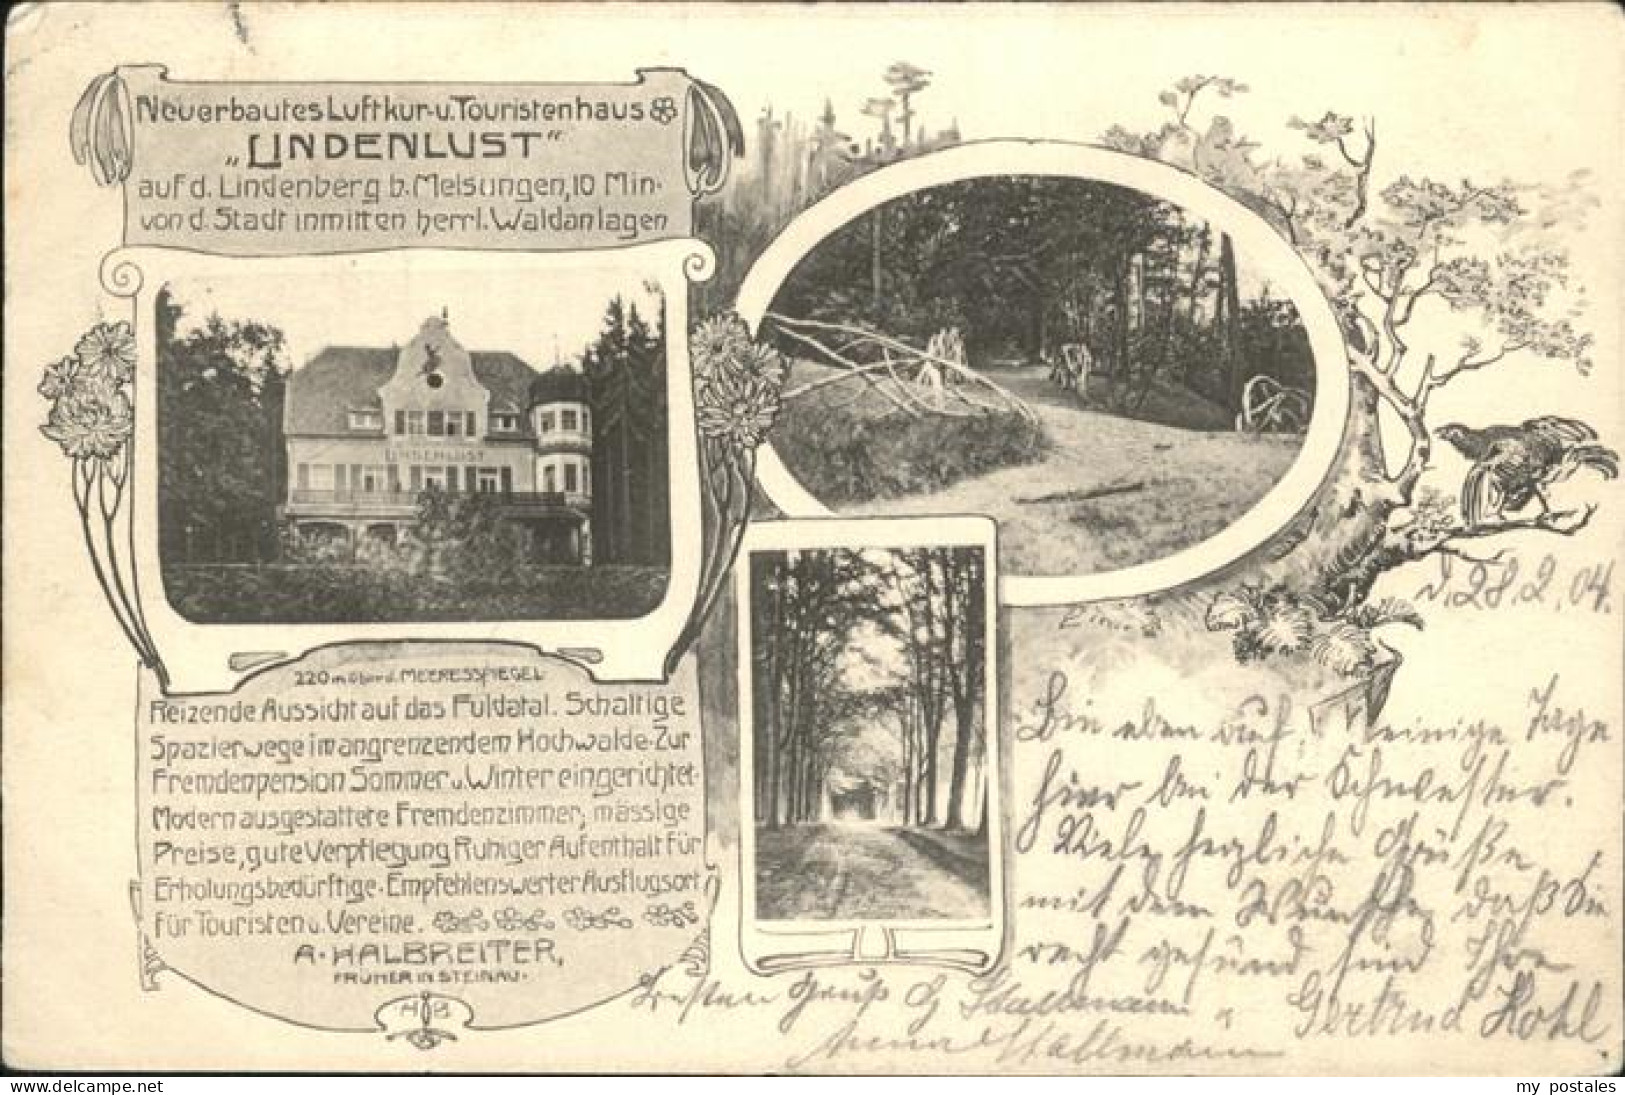 Neuerbautes Luftkur- u. Touristenhaus
„LINDENLUST“
auf d. Lindenberg b. Melsungen, 10 Min.
von d. Stadt inmitten herrl. Waldanlagen
LINDENLUST
220 m über d. MEERESSPIEGEL
Reizende Aussicht auf das Fuldatal. Schattige
Spazierwege im angrenzenden Hochwalde. Zur
Fremdenpension Sommer u. Winter eingerichtet.
Modern ausgestattete Fremdenzimmer, mässige
Preise, gute Verpflegung Ruhiger Aufenthalt für
Erholungsbedürftige. Empfehlenswerter Ausflugsort
für Touristen u. Vereine.
A. HALBREITER,
FRÜHER IN STEINAU.
HB
d. 28.2.04.
Bin eben auf einige Tage
hier bei der Schwester.
Viele herzliche Grüße
mit dem Wunsche, daß Sie
recht gesund sind Ihre
Gertrud Kohl
Besten Gruß G Stallmann u
Anna Stallmann
my postales